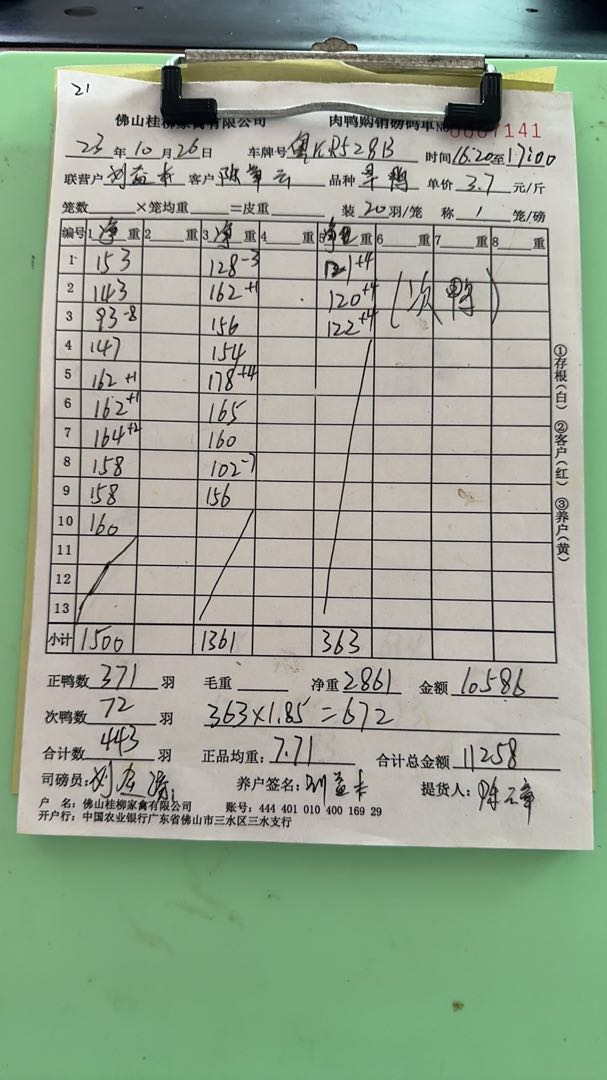 21
佛山桂柳家禽有限公司 肉鸭购销磅码单 № 0007141
23 年 10 月 26 日 车牌号 粤KR528B 时间 16:20 至 17:00
联营户 客户 品种 旱鸭 单价 3.7 元/斤
笼数 ×笼均重 =皮重 装 20 羽/笼 称 1 笼/磅
编号 1 净重 2 重 3 净重 4 重 5 净重 6 重 7 重 8 重
1 153 128 -3 121 +4
2 143 162 +1 120 +4 (次鸭)
3 93 -8 156 122 +4
4 147 154
5 162 +1 178 +4
6 162 +1 165
7 164 +2 160
8 158 102 -7
9 158 156
10 160
11
12
13
小计 1500 1361 363
正鸭数 371 羽 毛重 净重 2861 金额 10586
次鸭数 72 羽 363×1.85=672
合计数 443 羽 正品均重: 7.71 合计总金额 11258
司磅员: 养户签名: 提货人:
户 名: 佛山桂柳家禽有限公司 账号: 444 401 010 400 169 29
开户行: 中国农业银行广东省佛山市三水区三水支行
①存根(白) ②客户(红) ③养户(黄)